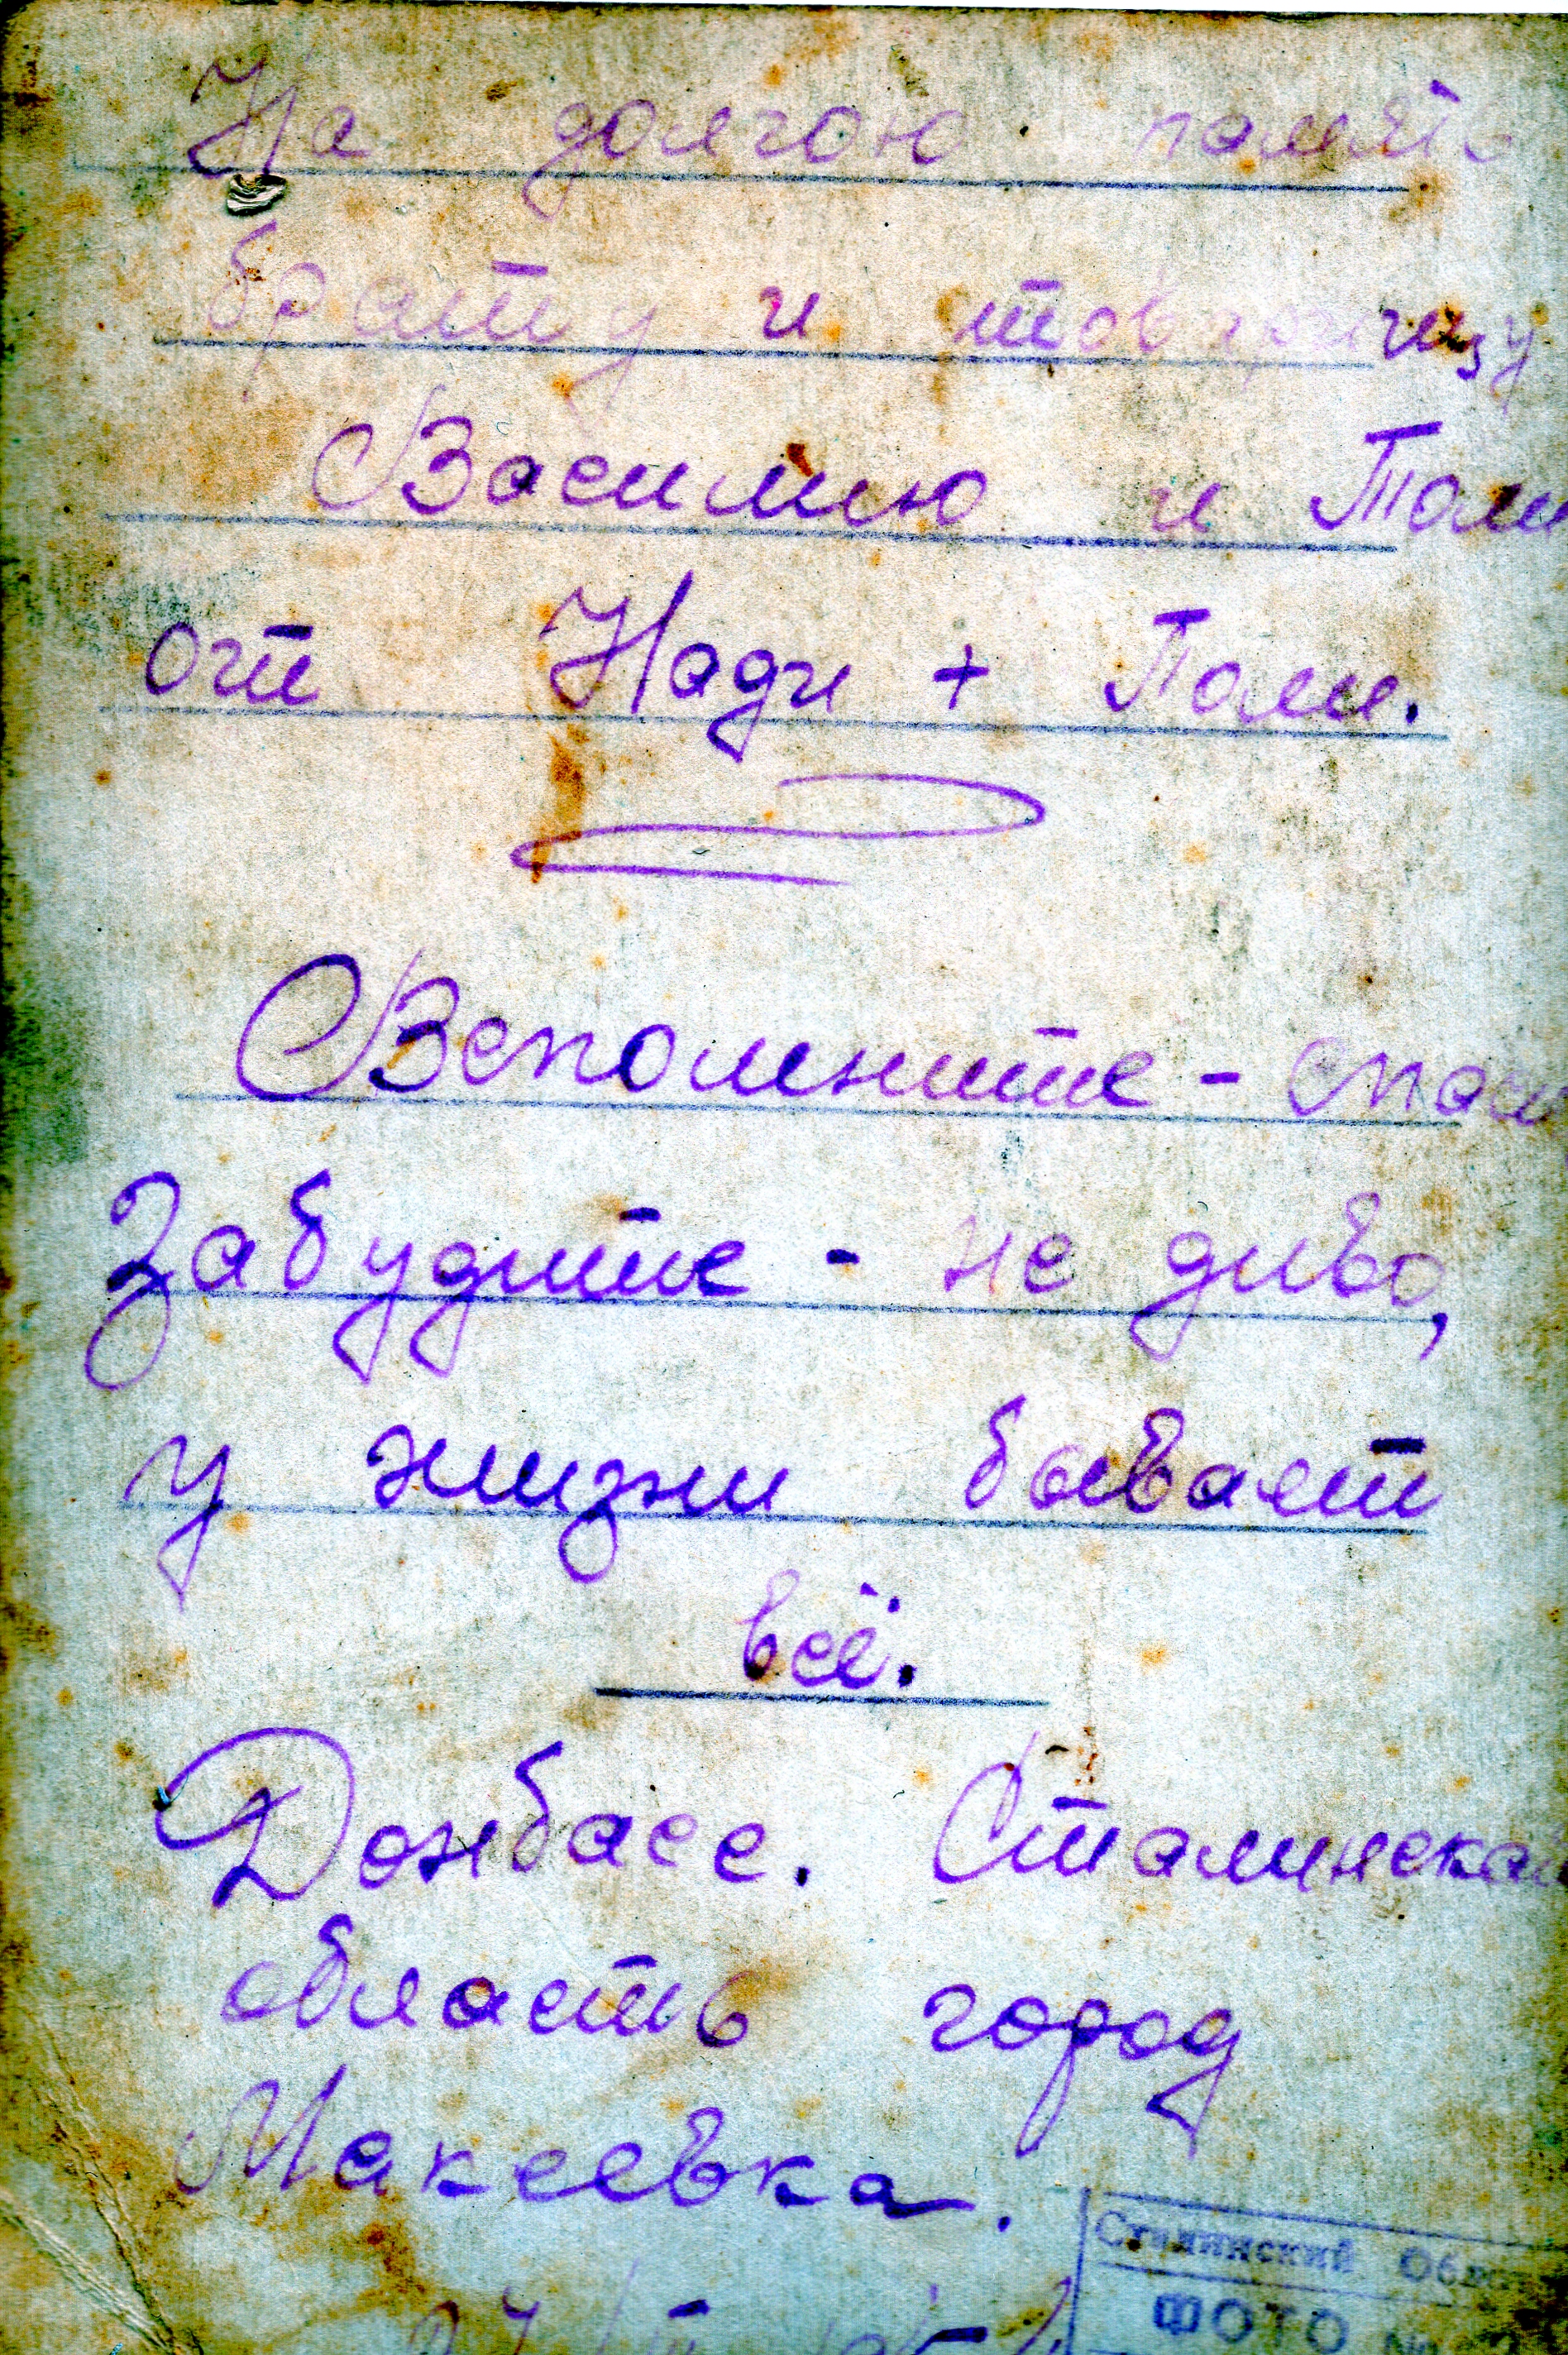 На долгою память
брату и товарищу
Василию и Толи
от Нади + Поли.
Вспомните - спаси
Забудите - не диво,
у жизни бывает
всё.
Донбасс. Сталинская
область город
Макеевка.
Сталинский Обл
ФОТО